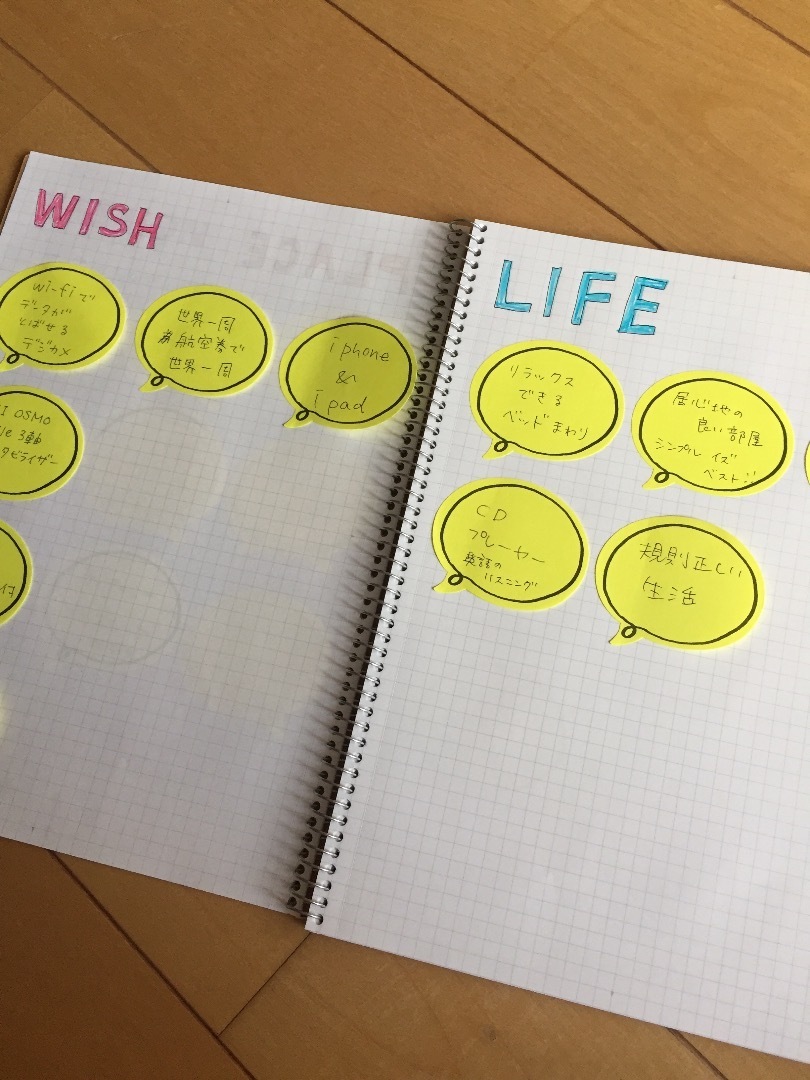 WISH
wi-fiで
データが
とばせる
デジカメ
世界一周
航空券で
世界一周
iphone
&
ipad
I OSMO
le 3軸
タビライザー
付
PLACE
LIFE
リラックス
できる
ベッドまわり
居心地の
良い部屋
シンプル イズ
ベスト
CD
プレーヤー
英語の
リスニング
規則正しい
生活